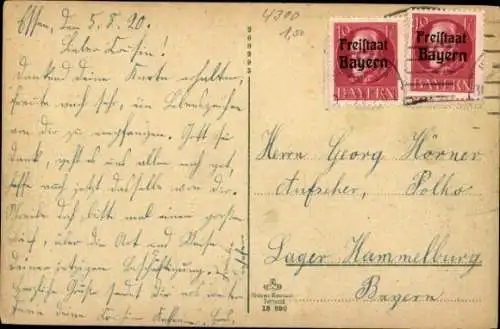 Essen, den 5.8.20.
Lieber Cousin!
Dankend deine Karte erhalten,
freute mich sehr, ein Lebenszeichen
von dir zu empfangen. Gott sei
dank, geht es uns allen noch gut,
hoffe auch jetzt dasselbe von dir.
Schreibe doch bitte mal einen großen
Brief, über die Art und Weise
deiner jetzigen Beschäftigung.
Herzliche Grüße sendet dir
deine Cousine
4300
1,50
10 10
Freistaat Freistaat
Bayern Bayern
BAYERN BAYERN
Herrn Georg Hörner
Aufseher, Polko
Lager Hammelburg
Bayern
18 680